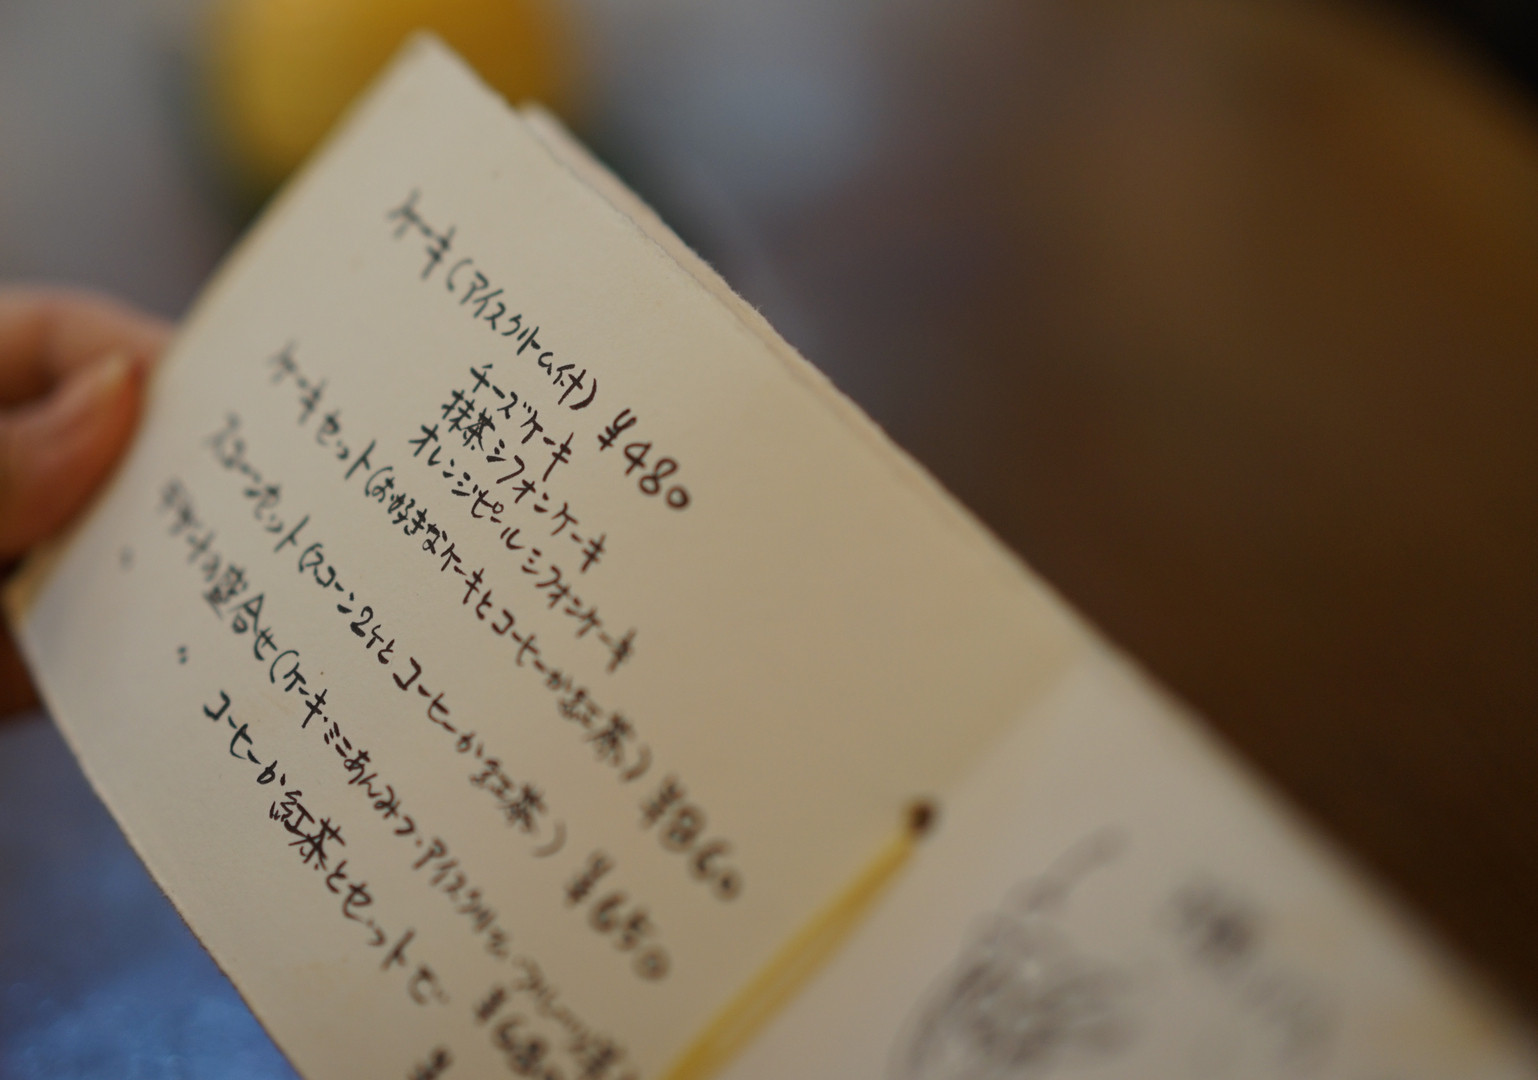 ケーキ(アイスクリーム付) ¥480
チーズケーキ
抹茶シフォンケーキ
オレンジピールシフォンケーキ
ケーキセット(お好きなケーキとコーヒーか紅茶) ¥860
スコーンセット(スコーン2ケとコーヒーか紅茶) ¥650
デザートの盛合せ(ケーキ・ミニあんみつ・アイスクリーム・フルーツ
¥680
〃 コーヒーか紅茶とセットで ¥